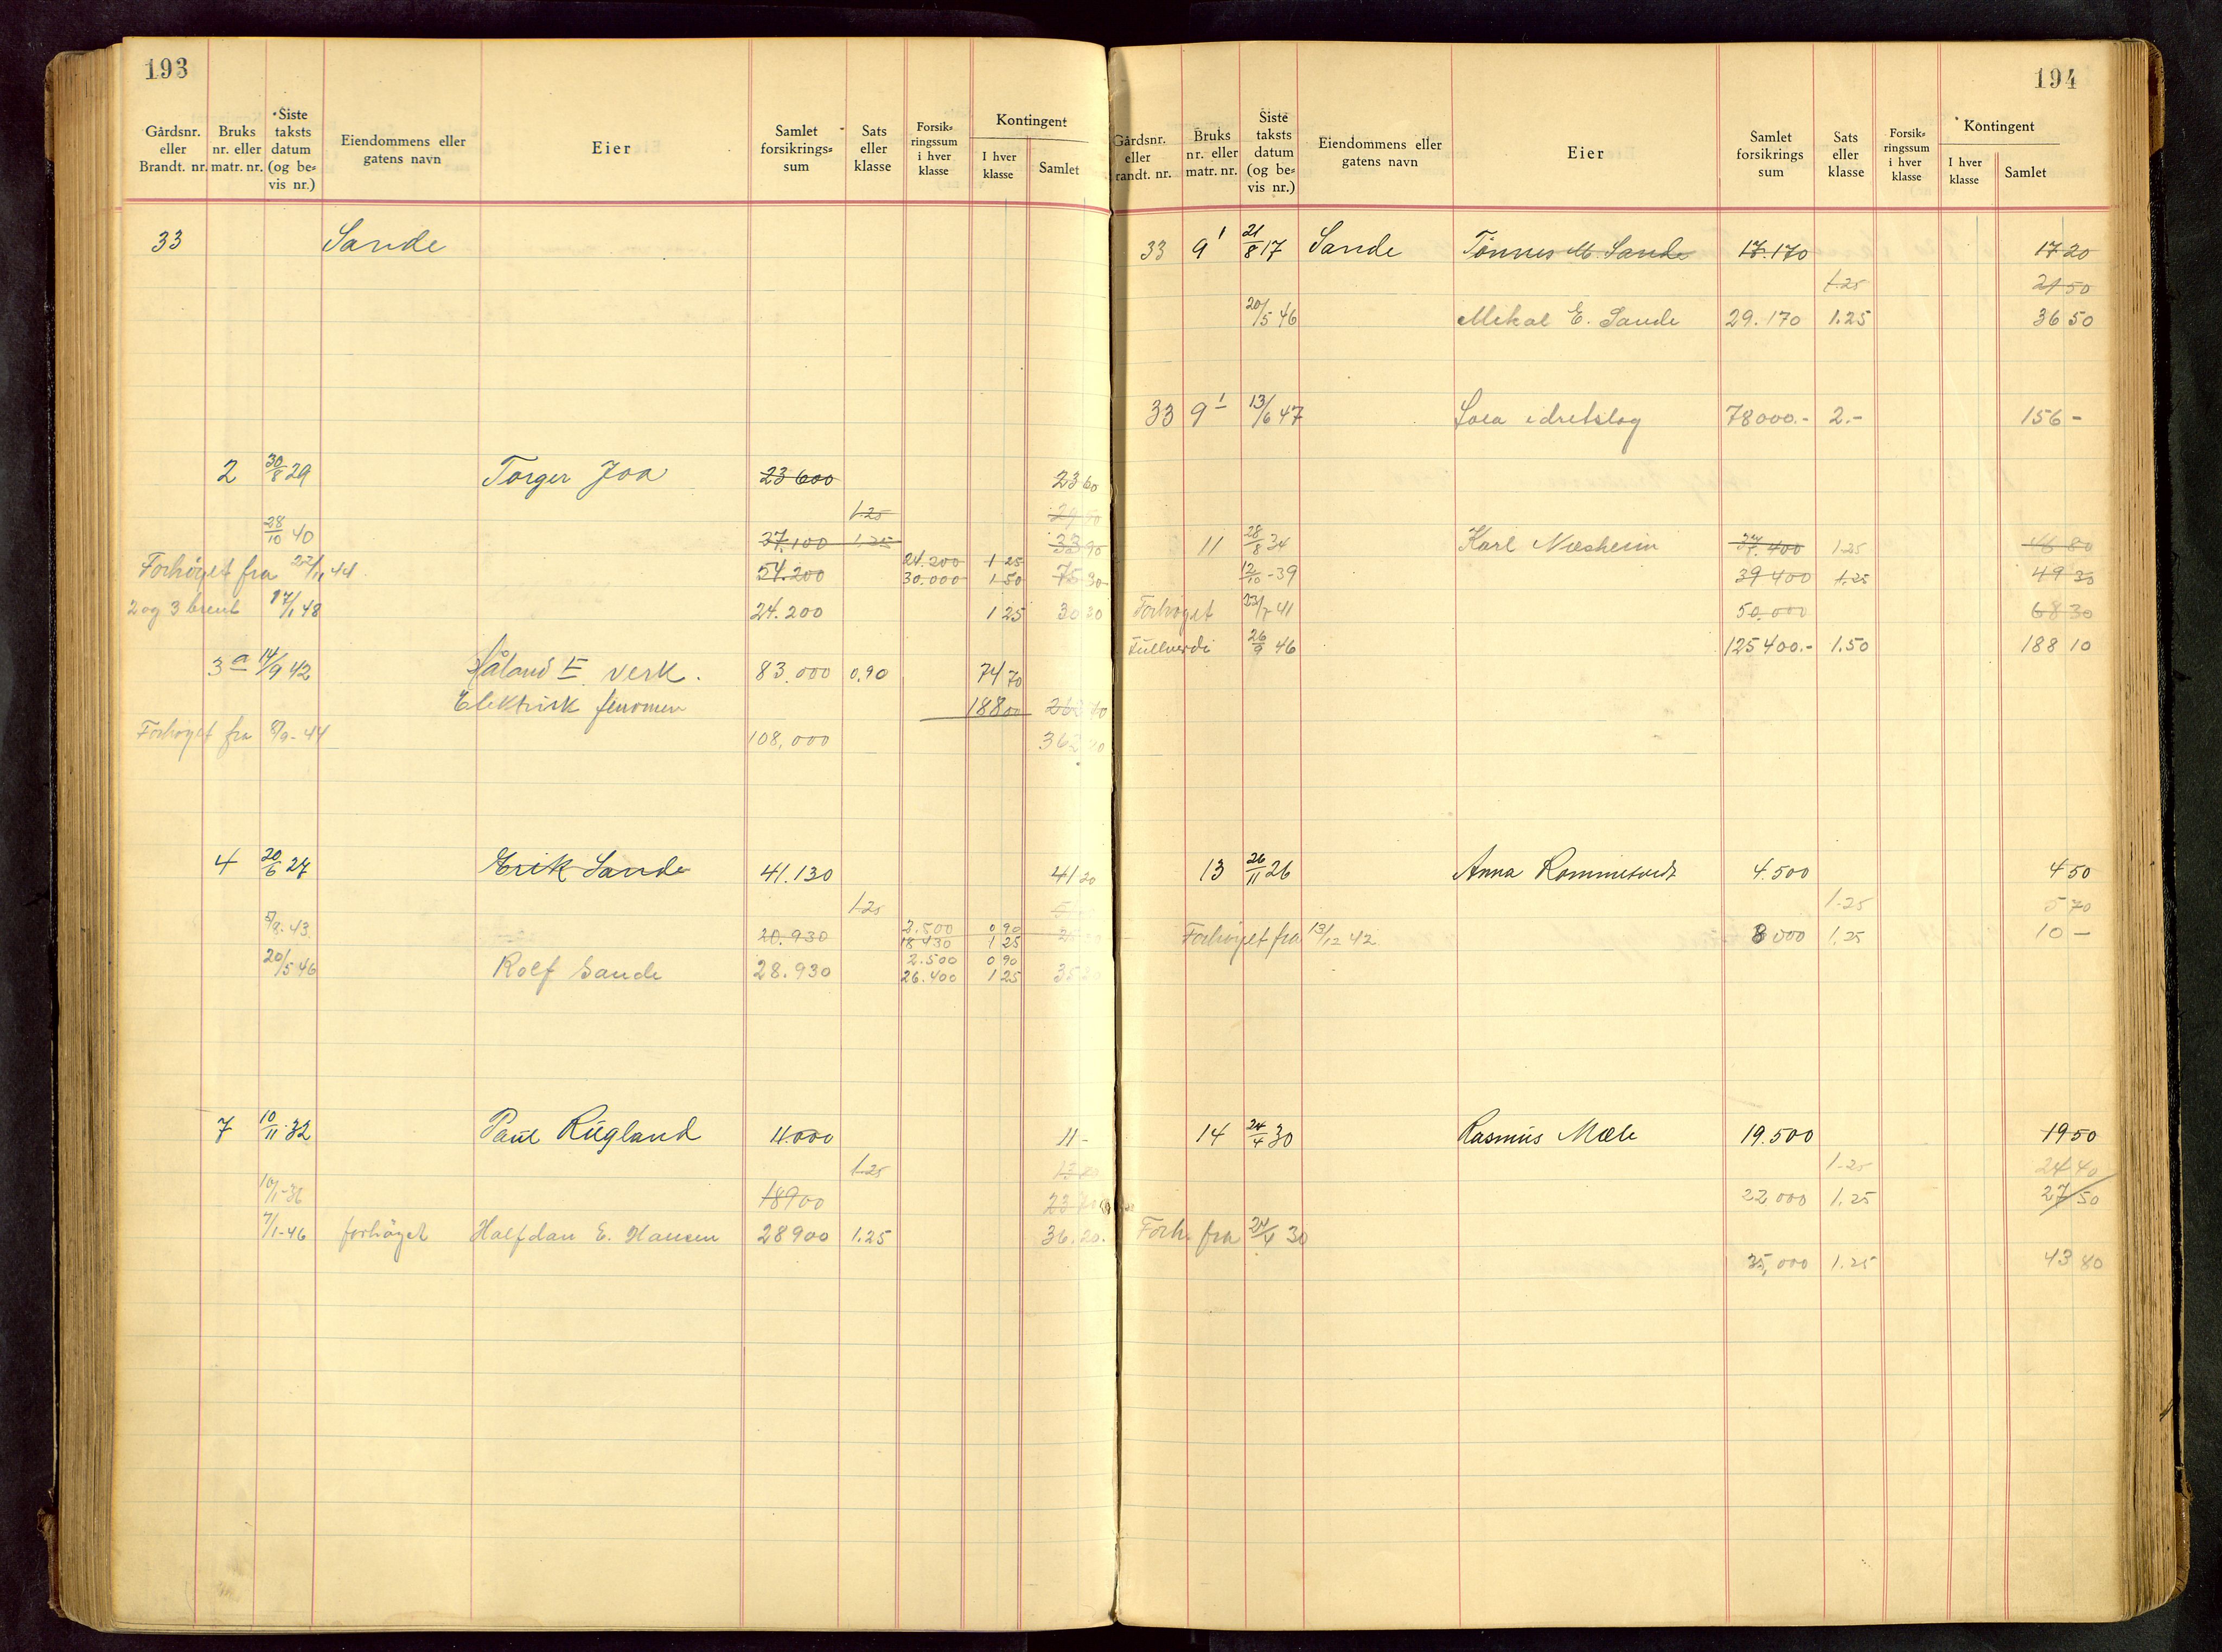 193
Gårdsnr. eller Brandt. nr. Bruks nr. eller matr. nr. Siste taksts datum (og be= vis nr.) Eiendommens eller gatens navn Eier Samlet forsikrings= sum Sats eller klasse Forsik= ringssum i hver klasse Kontingent I hver klasse Samlet
33 Sande
2 30/8 29 Torger Joa 23600 23 60
1.25
28/10 40 37.100 1.25 33 90
24.200 1 25
Forhöyet fra 22/11 44 54.200 30.000 1 50 75 30
2 og 3 brent 17/1 48 24.200 1 25 30 30
3 a 14/9 42 Håland E. verk. 83.000 0,90 74 70
Elektrisk fenomen 188 00
Forhöyet fra 44 108,000
4 20/6 27 Erik Sande 41.130 41 20
1.25
2.500 0 90
/8.43 20.930 18 430 1 25
2.500 0 90
20/5 46 Rolf Sande 28.930 26.400 1 25
7 10/11 32 Paul Rügland 11.000 11 -
1.25
10/1-36 18900
7/1-46 forhöyet Halfdan E. Hansen 28900 1.25 36.20.
194
Gårdsnr. eller Brandt. nr. Bruks nr. eller matr. nr. Siste taksts datum (og be= vis nr.) Eiendommens eller gatens navn Eier Samlet forsikrings sum Sats eller klasse Forsik= ringssum i hver klasse Kontingent I hver klasse Samlet
33 9 1 21/8 17 Sande Tönnes M. Sande 17.170 17 20
1.25 21 50
20/5 46 Mikal E. Sande 29.170 1.25 36 50
33 9 1 13/6 47 Sola idretslag 78000.- 2.- 156 -
11 28/8 34 Karl Næsheim 37.400 1.25 46 80
12/10-39 39 400 1.25 49 30
Forhöyet 23/7 41 50.000 68 30
Fullverdi 26/9 46 125400.- 1.50 188 10
13 26/11 26 Anna Rommetvedt 4.500 4 50
1.25 5 70
Forhöyet fra 13/12 42 8000 1.25 10 -
14 24/4 30 Rasmus Mæle 19.500 19 50
1.25 24 40
22.000 1.25 27 50
Forh. fra 24/4 30
35,000 1.25 43 80